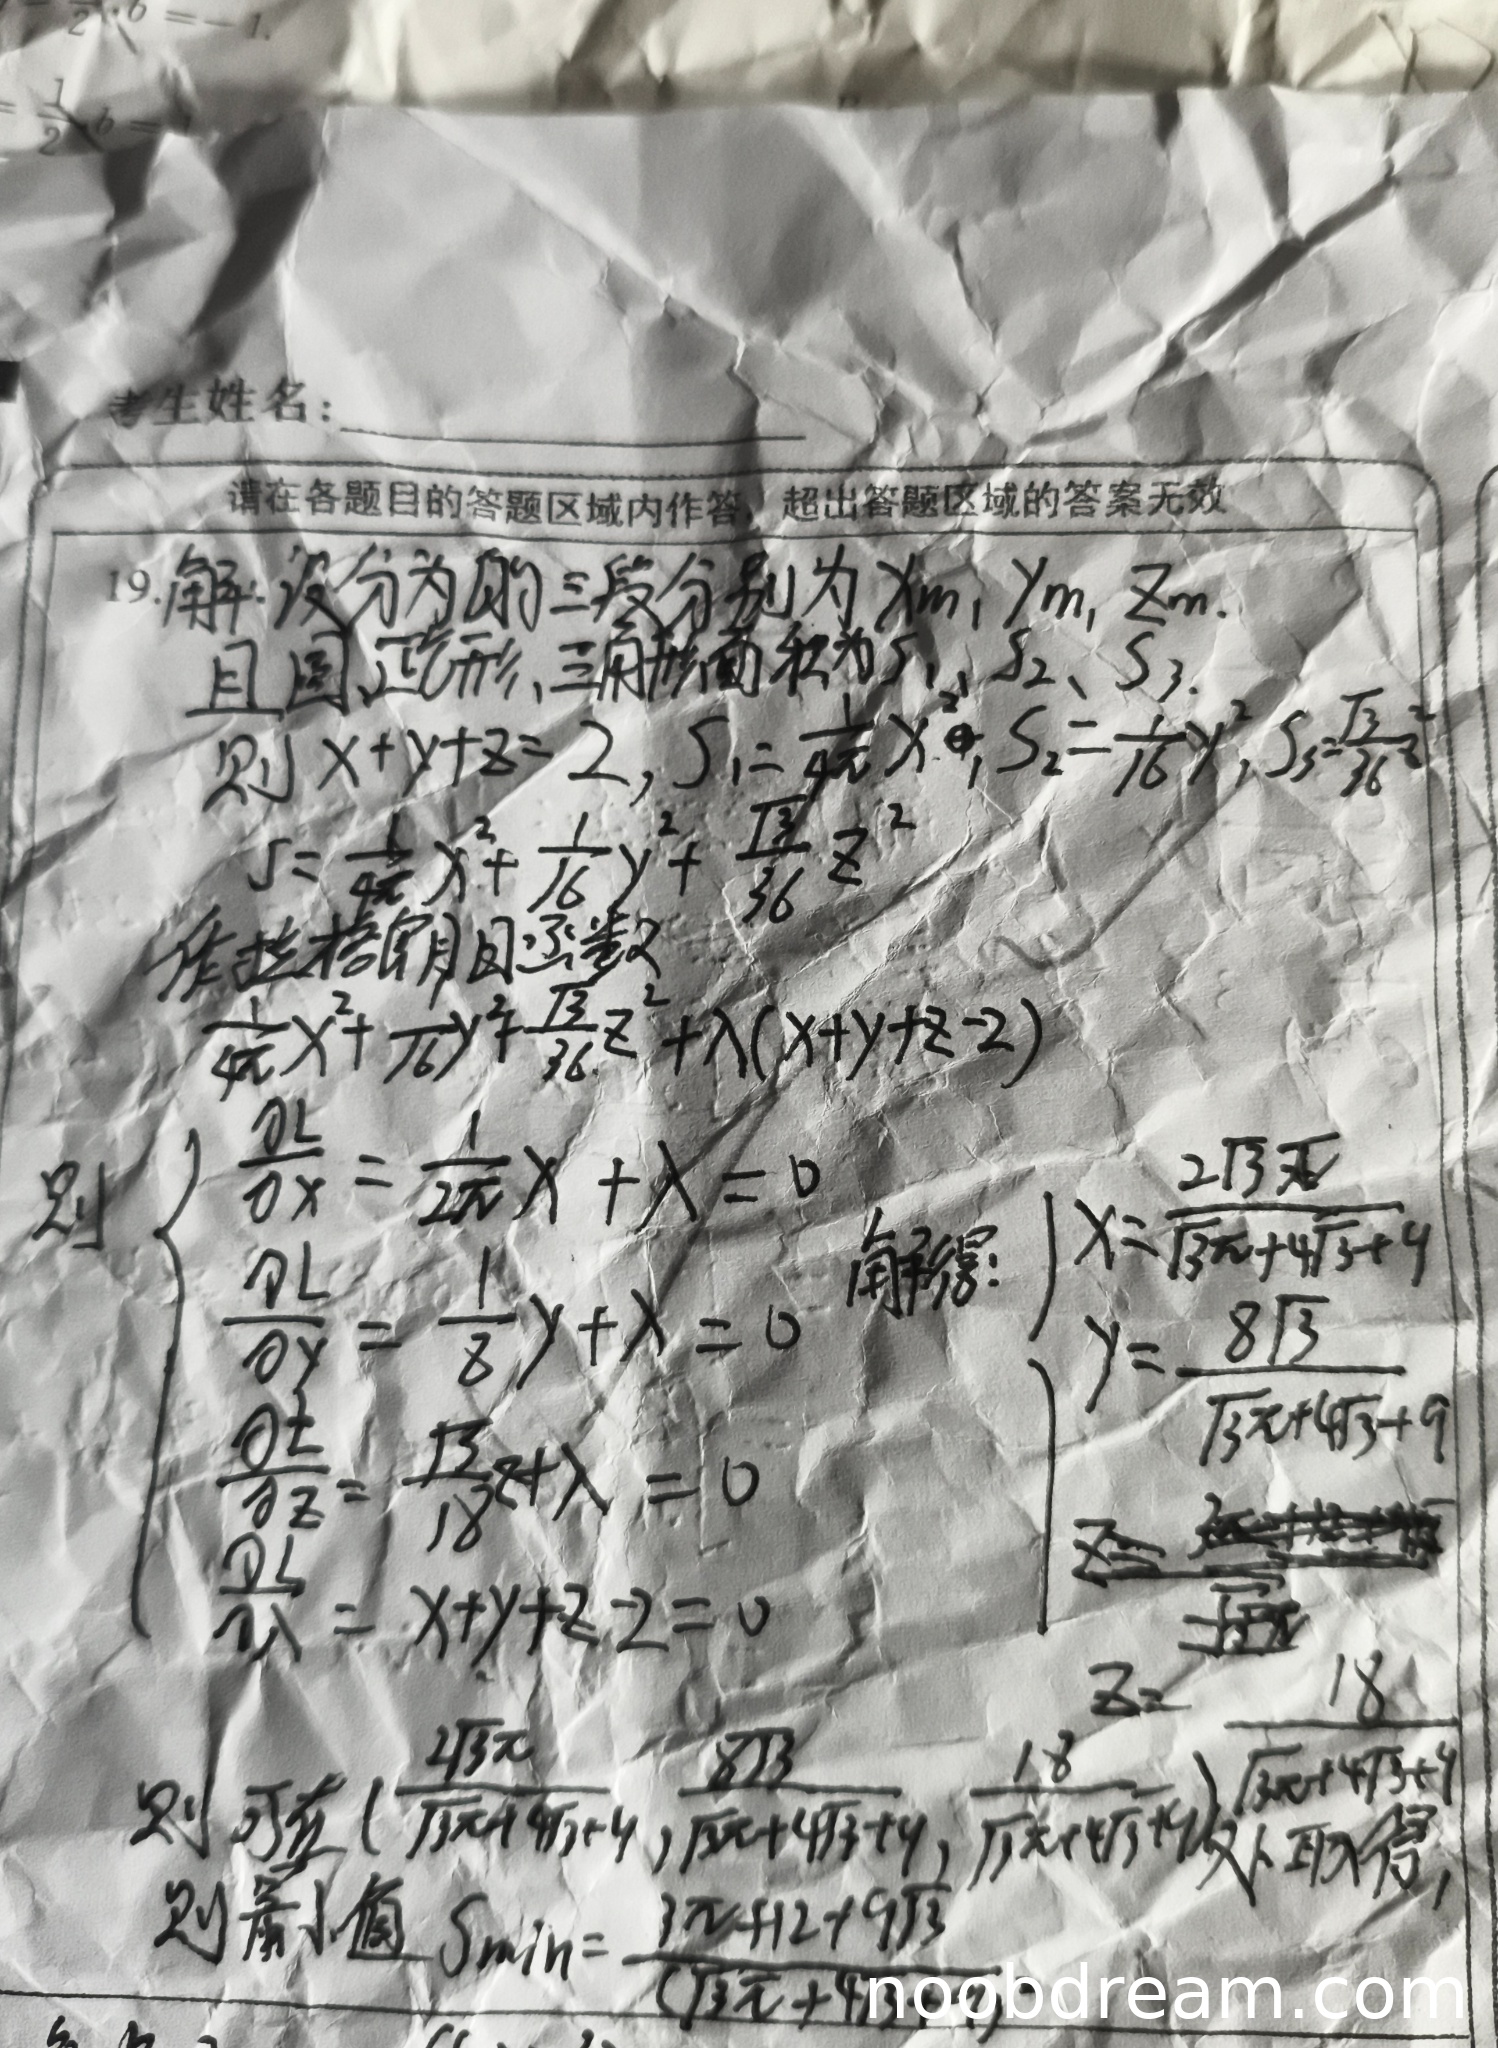 = -1.
考生姓名:
请在各题目的答题区域内作答,超出答题区域的答案无效
19.解:设分为的三段分别为 Xm, Ym, Zm.
且圆、正方形、三角形面积为S₁、S₂、S₃.
则 x+y+z=2, S₁=1/4π x², S₂=1/16 y², S₃=√3/36 z²
S=1/4π x²+1/16 y²+√3/36 z²
作拉格朗日函数
1/4π x²+1/16 y²+√3/36 z²+λ(x+y+z-2)
则
∂L/∂x=1/2π x+λ=0
∂L/∂y=1/8 y+λ=0
∂L/∂z=√3/18 z+λ=0
∂L/∂λ=x+y+z-2=0
解得:
x=2√3π/√3π+4√3+9
y=8√3/√3π+4√3+9
z=18/√3π+4√3+9
则可在(2√3π/√3π+4√3+9, 8√3/√3π+4√3+9, 18/√3π+4√3+9)处取得,
则最小值 Smin=3π+12+9√3/(√3π+4√3+9)
noobdream.com